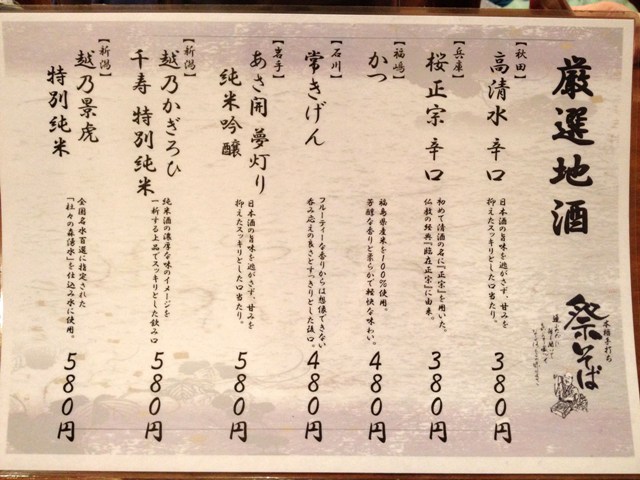 厳選地酒
本格手打ち
祭そば
【秋田】
高清水 辛口
日本酒の旨味を逃がさず、甘みを
抑えたスッキリとした口当たり。
380円
【兵庫】
桜正宗 辛口
初めて清酒の名に『正宗』を用いた。
仏教の経典『臨在正宗』に由来。
380円
【福嶋】
かつ
福島県産米を100%使用。
芳醇な香りと柔らかで軽快な味わい。
480円
【石川】
常きげん
フルーティーな香りからは想像できない
呑み応えの良さとすっきりとした後口。
480円
【岩手】
あさ開 夢灯り
純米吟醸
日本酒の旨味を逃がさず、甘みを
抑えたスッキリとした口当たり。
580円
【新潟】
越乃かぎろひ
千寿 特別純米
純米酒の濃厚な味のイメージを
一新する上品でスッキリとした飲み口
580円
【新潟】
越乃景虎
特別純米
全国名水百選に指定された
『杜々の森湧水』を仕込み水に使用。
580円